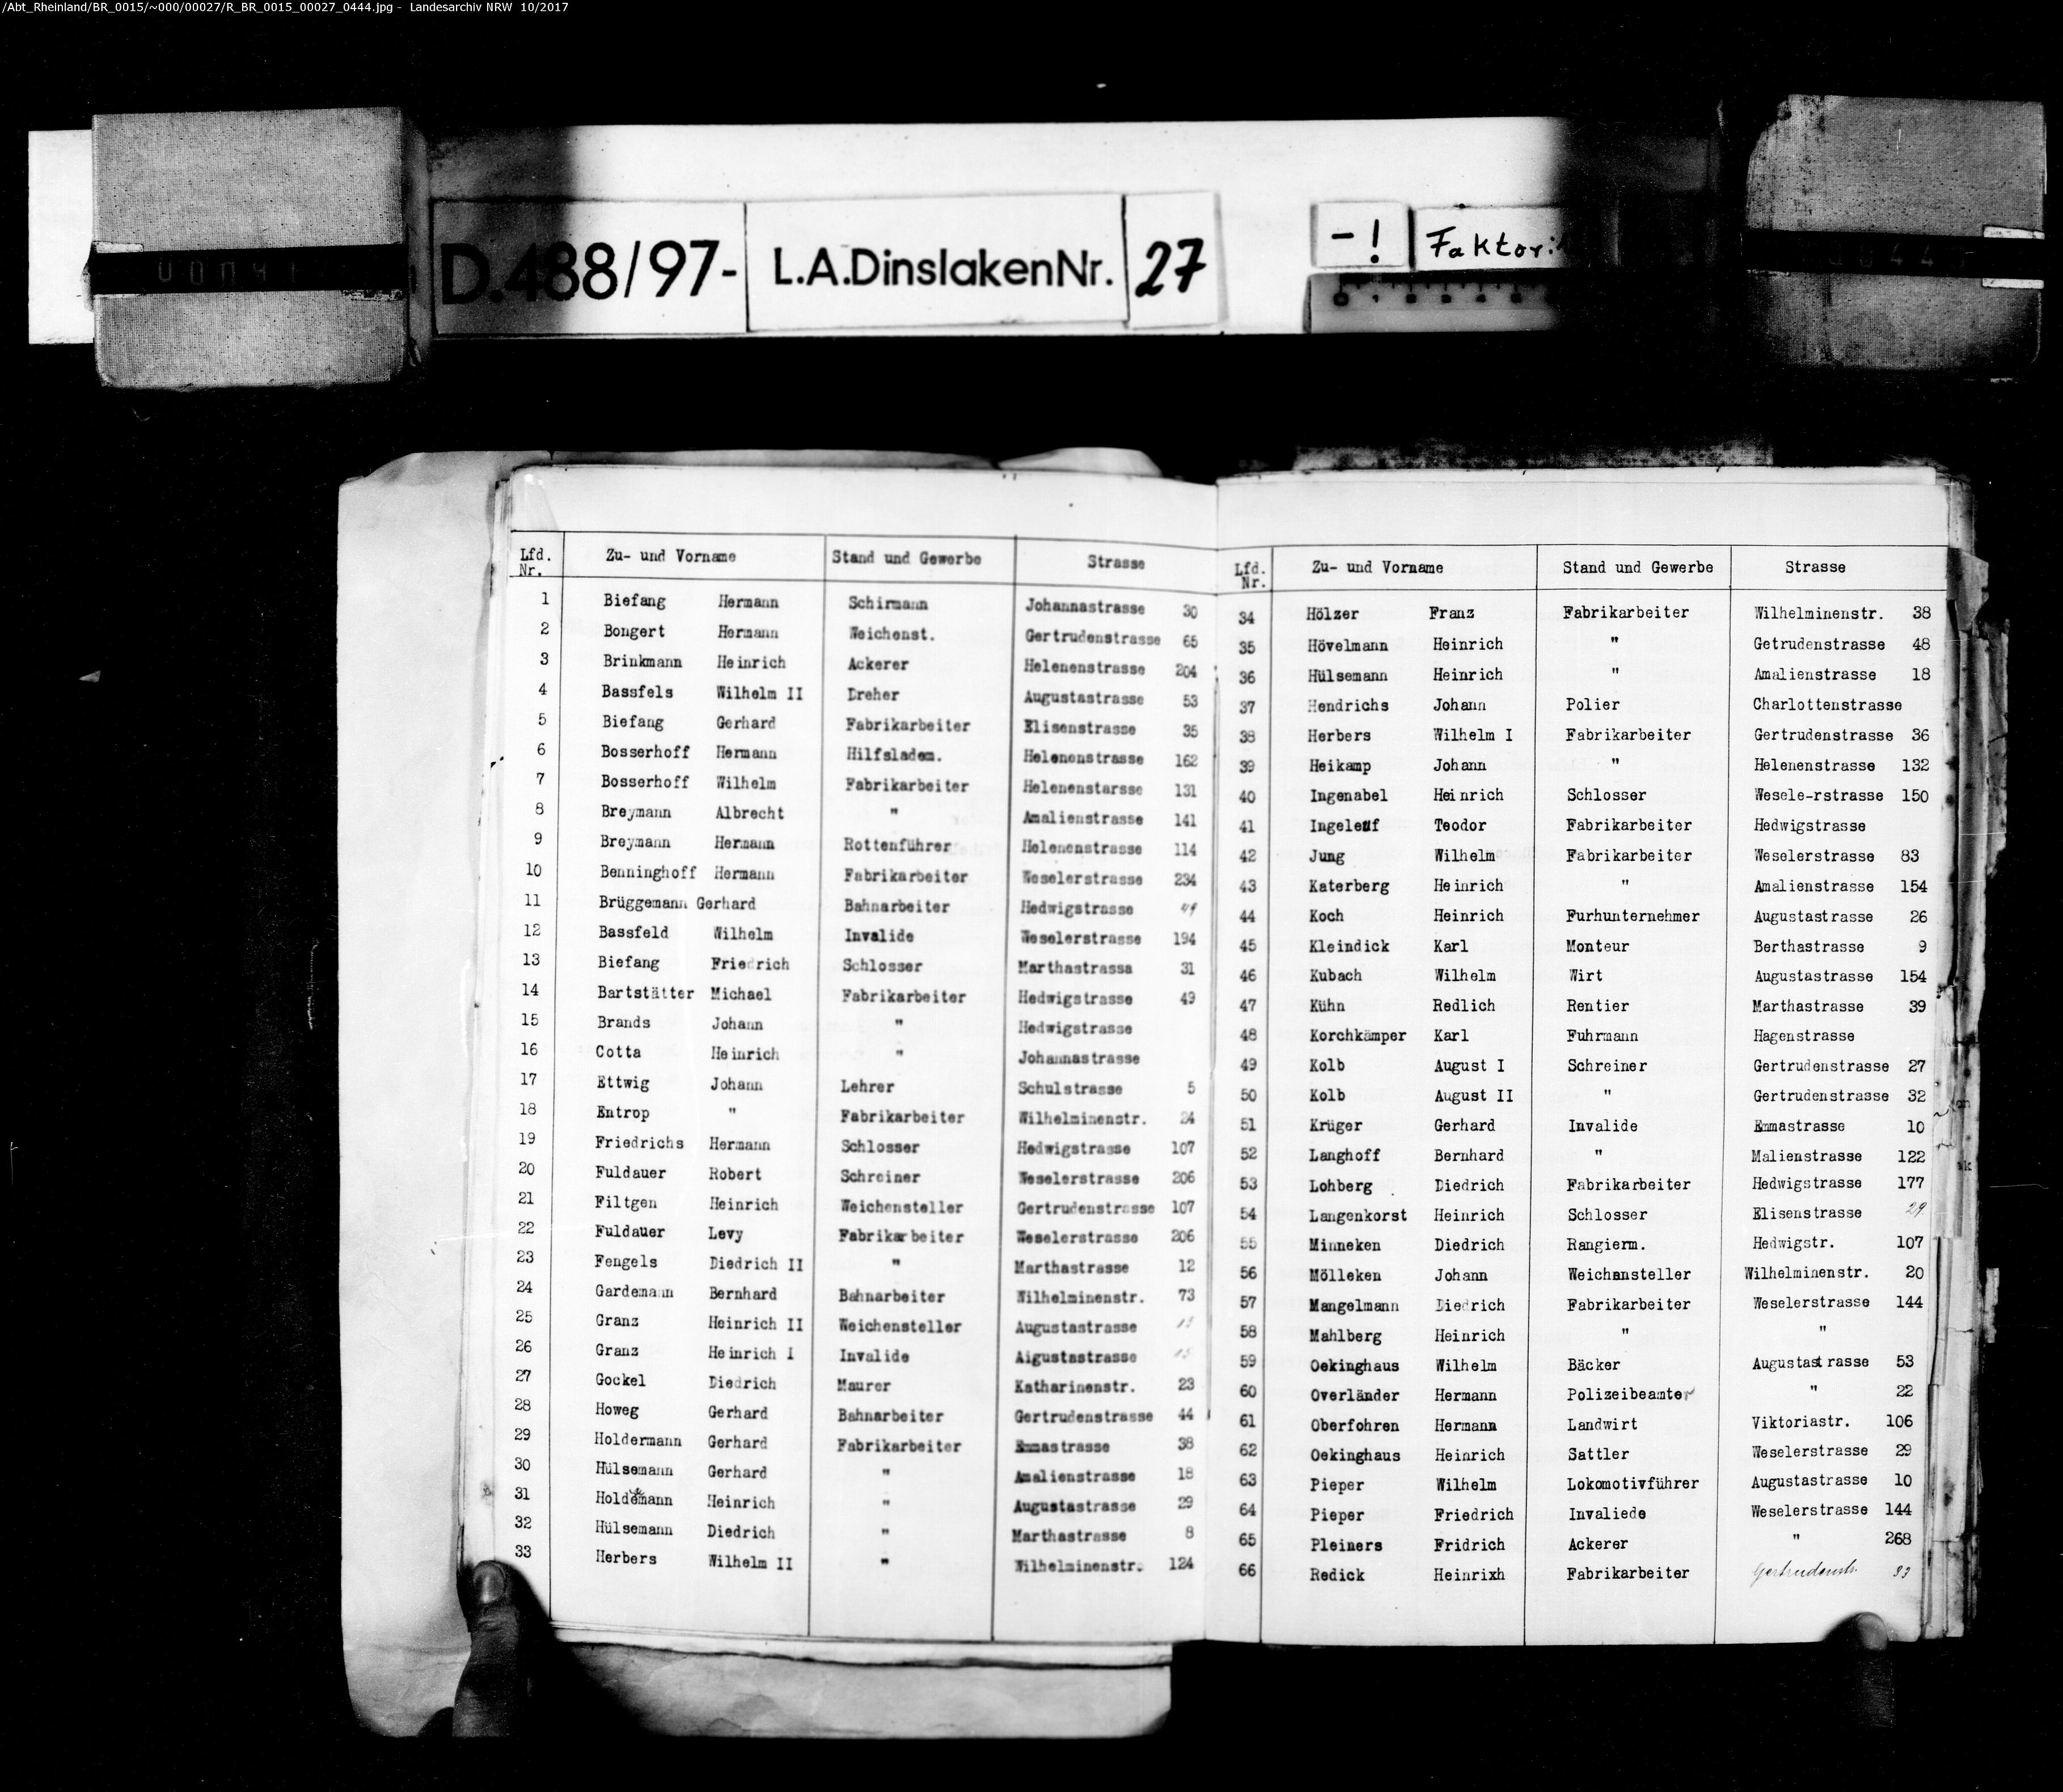 /Abt_Rheinland/BR_0015/~000/00027/R_BR_0015_00027_0444.jpg - Landesarchiv NRW 10/2017
D.488/97- L.A.DinslakenNr. 27 -! Faktor:
0 1 2 3 4 5
Lfd. Nr. Zu- und Vorname Stand und Gewerbe Strasse
1 Biefang Hermann Schirmann Johannastrasse 30
2 Bongert Hermann Weichenst. Gertrudenstrasse 65
3 Brinkmann Heinrich Ackerer Helenenstrasse 204
4 Bassfels Wilhelm II Dreher Augustastrasse 53
5 Biefang Gerhard Fabrikarbeiter Elisenstrasse 35
6 Bosserhoff Hermann Hilfsladem. Helenonstrasse 162
7 Bosserhoff Wilhelm Fabrikarbeiter Helenenstarsse 131
8 Breymann Albrecht " Amalienstrasse 141
9 Breymann Hermann Rottenführer Helenenstrasse 114
10 Benninghoff Hermann Fabrikarbeiter Weselerstrasse 234
11 Brüggemann Gerhard Bahnarbeiter Hedwigstrasse
12 Bassfeld Wilhelm Invalide Weselerstrasse 194
13 Biefang Friedrich Schlosser Marthastrassa 31
14 Bartstätter Michael Fabrikarbeiter Hedwigstrasse 49
15 Brands Johann " Hedwigstrasse
16 Cotta Heinrich " Johannastrasse
17 Ettwig Johann Lehrer Schulstrasse 5
18 Entrop " Fabrikarbeiter Wilhelminenstr. 24
19 Friedrichs Hermann Schlosser Hedwigstrasse 107
20 Fuldauer Robert Schreiner Weselerstrasse 206
21 Filtgen Heinrich Weichensteller Gertrudenstrasse 107
22 Fuldauer Levy Fabrikarbeiter Weselerstrasse 206
23 Fengels Diedrich II " Marthastrasse 12
24 Gardemann Bernhard Bahnarbeiter Wilhelminenstr. 73
25 Granz Heinrich II Weichensteller Augustastrasse 15
26 Granz Heinrich I Invalide Aigustastrasse 15
27 Gockel Diedrich Maurer Katharinenstr. 23
28 Howeg Gerhard Bahnarbeiter Gertrudenstrasse 44
29 Holdermann Gerhard Fabrikarbeiter Emmastrasse 38
30 Hülsemann Gerhard " Amalienstrasse 18
31 Holdemann Heinrich " Augustastrasse 29
32 Hülsemann Diedrich " Marthastrasse 8
33 Herbers Wilhelm II " Wilhelminenstr. 124
Lfd. Nr. Zu- und Vorname Stand und Gewerbe Strasse
34 Hölzer Franz Fabrikarbeiter Wilhelminenstr. 38
35 Hövelmann Heinrich " Getrudenstrasse 48
36 Hülsemann Heinrich " Amalienstrasse 18
37 Hendrichs Johann Polier Charlottenstrasse
38 Herbers Wilhelm I Fabrikarbeiter Gertrudenstrasse 36
39 Heikamp Johann " Helenenstrasse 132
40 Ingenabel Heinrich Schlosser Wesele-rstrasse 150
41 Ingeleuf Teodor Fabrikarbeiter Hedwigstrasse
42 Jung Wilhelm Fabrikarbeiter Weselerstrasse 83
43 Katerberg Heinrich " Amalienstrasse 154
44 Koch Heinrich Furhunternehmer Augustastrasse 26
45 Kleindick Karl Monteur Berthastrasse 9
46 Kubach Wilhelm Wirt Augustastrasse 154
47 Kühn Redlich Rentier Marthastrasse 39
48 Korchkämper Karl Fuhrmann Hagenstrasse
49 Kolb August I Schreiner Gertrudenstrasse 27
50 Kolb August II " Gertrudenstrasse 32
51 Krüger Gerhard Invalide Emmastrasse 10
52 Langhoff Bernhard " Malienstrasse 122
53 Lohberg Diedrich Fabrikarbeiter Hedwigstrasse 177
54 Langenkorst Heinrich Schlosser Elisenstrasse 29
55 Minneken Diedrich Rangierm. Hedwigstr. 107
56 Mölleken Johann Weichensteller Wilhelminenstr. 20
57 Mangelmann Diedrich Fabrikarbeiter Weselerstrasse 144
58 Mahlberg Heinrich " "
59 Oekinghaus Wilhelm Bäcker Augustastrasse 53
60 Overländer Hermann Polizeibeamter " 22
61 Oberfohren Hermann Landwirt Viktoriastr. 106
62 Oekinghaus Heinrich Sattler Weselerstrasse 29
63 Pieper Wilhelm Lokomotivführer Augustastrasse 10
64 Pieper Friedrich Invaliede Weselerstrasse 144
65 Pleiners Fridrich Ackerer " 268
66 Redick Heinrixh Fabrikarbeiter Gertrudenstr. 33